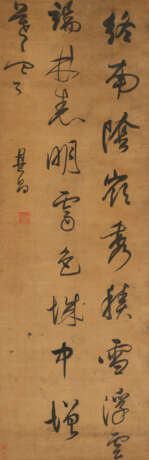 終南陰嶺秀積雪浮雲
端林表明霽色城中增
暮寒 其昌